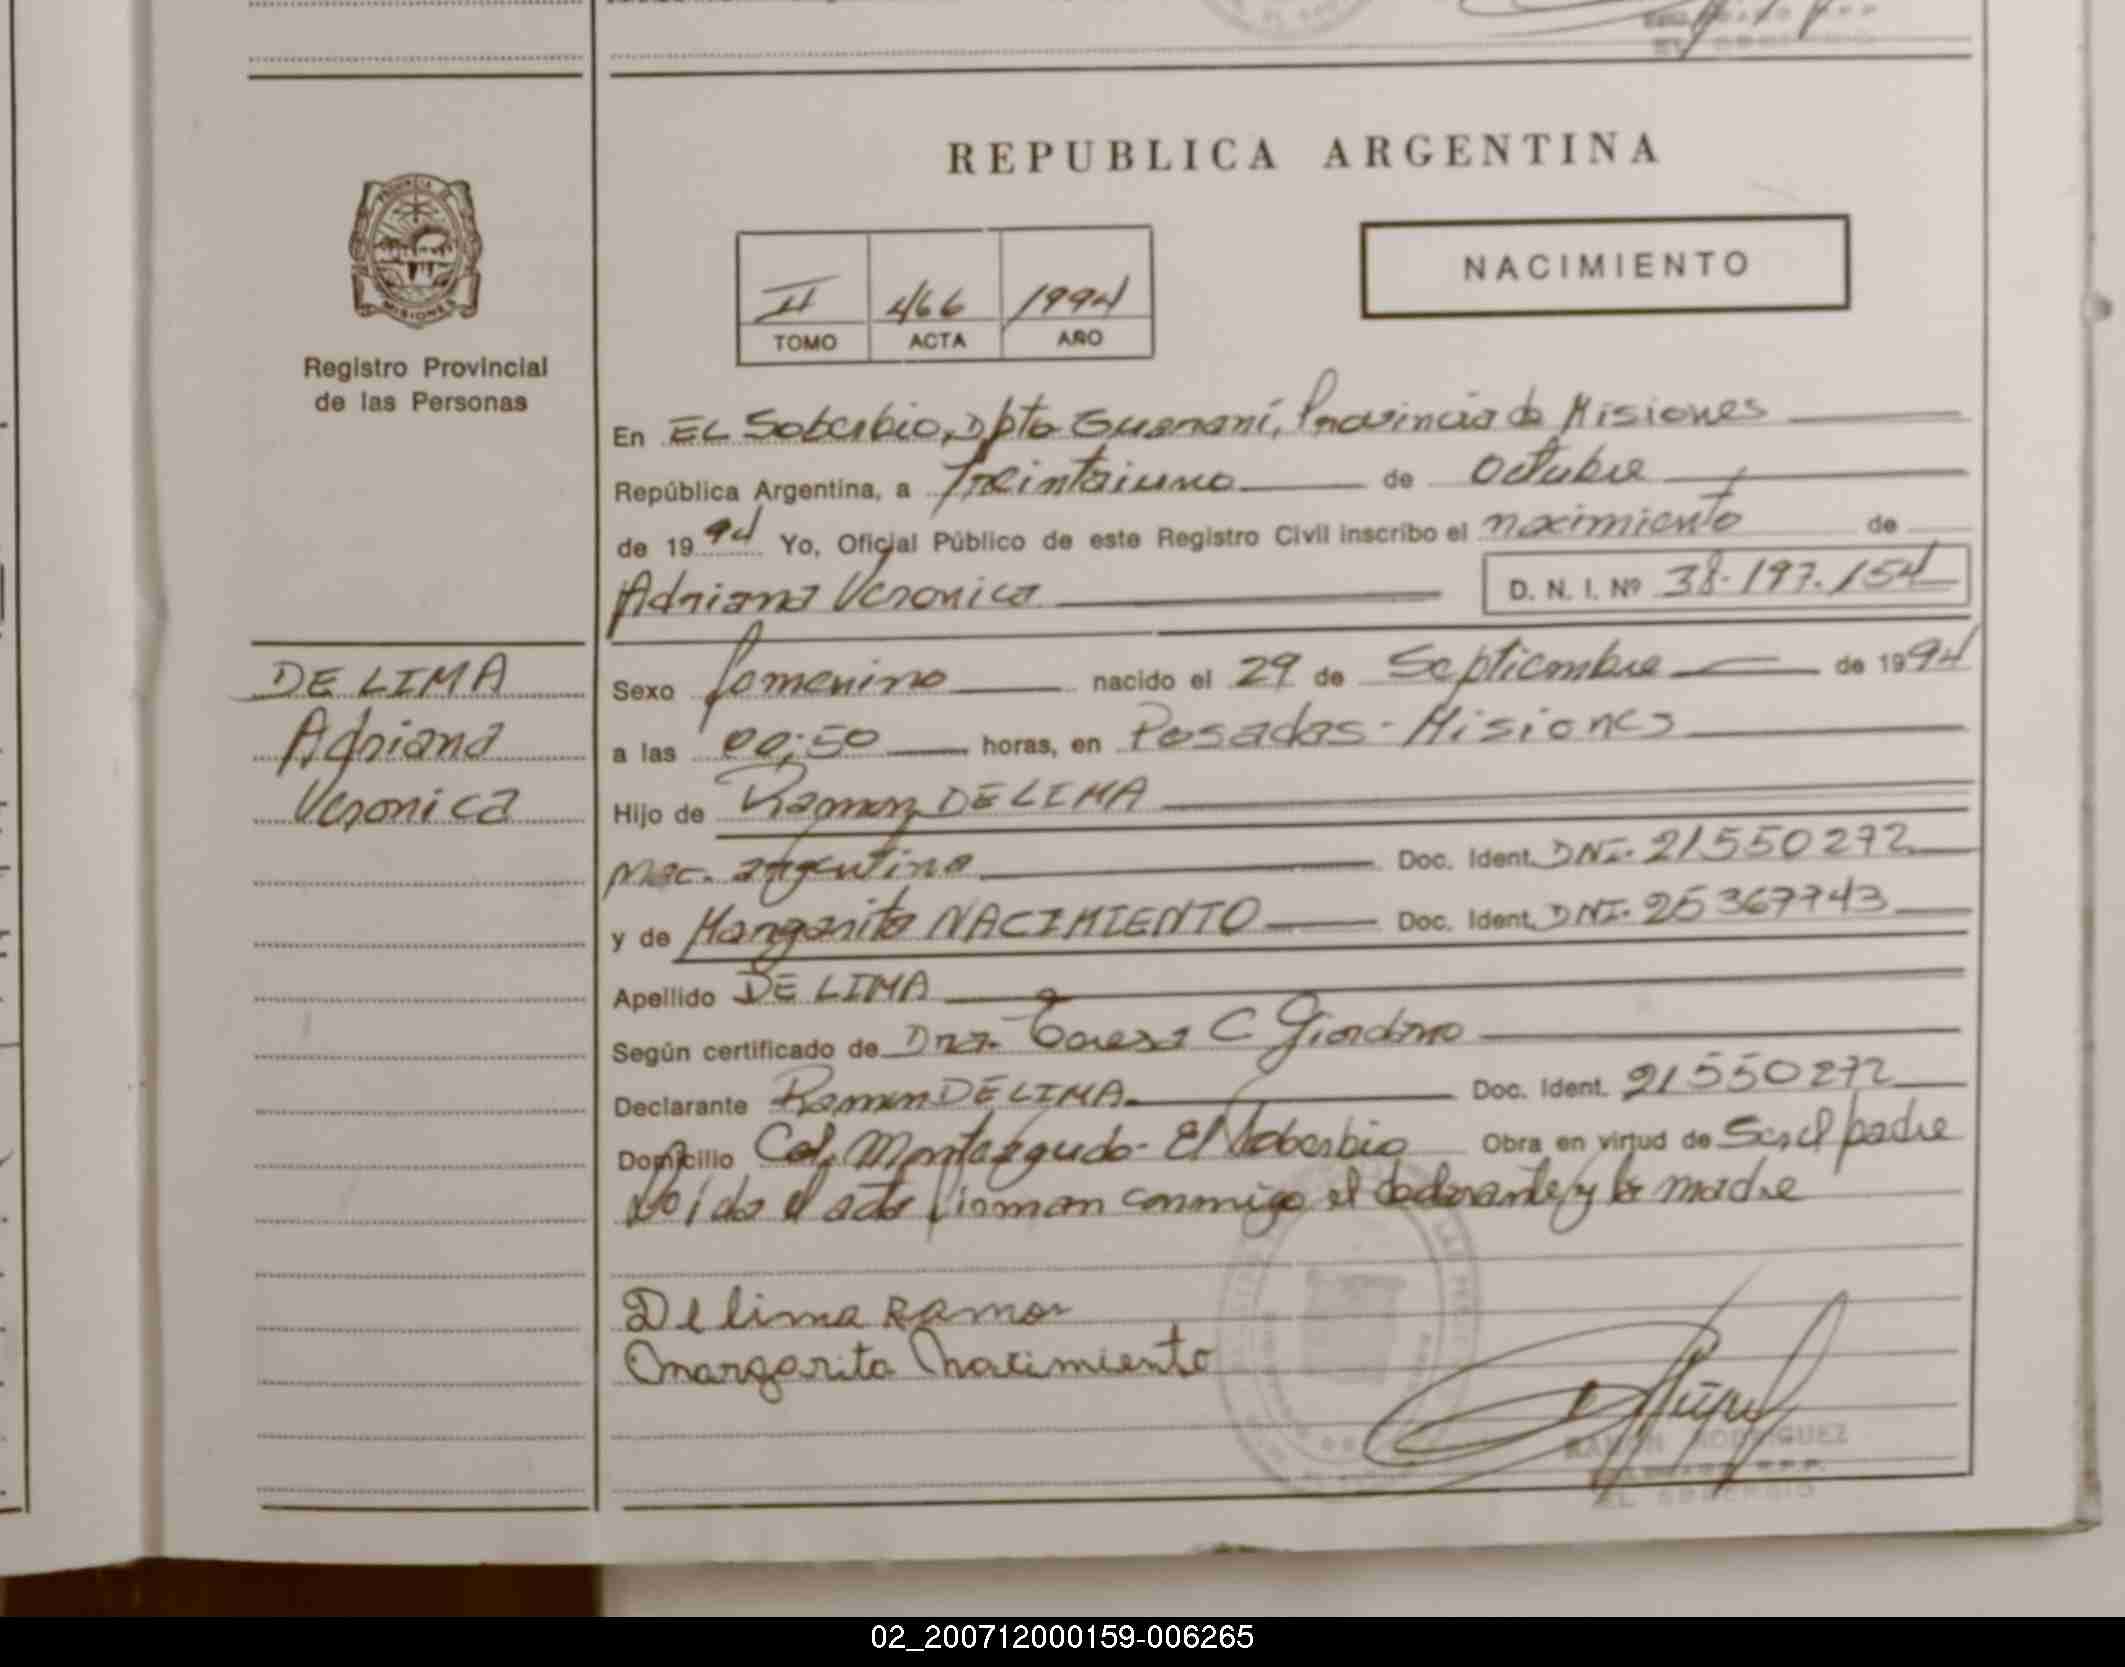 REPUBLICA ARGENTINA
NACIMIENTO
II 466 1994
TOMO ACTA AÑO
PROVINCIA DE
MISIONES
Registro Provincial
de las Personas
En EL Soberbio, Dpto Guaraní, Provincia de Misiones
República Argentina, a Treintaiuno de Octubre
de 1994 Yo, Oficial Público de este Registro Civil inscribo el nacimiento de
Adriana Veronica D. N. I. Nº 38.197.154
DE LIMA
Adriana
Veronica
Sexo femenino nacido el 29 de Septiembre de 1994
a las 00:50 horas, en Posadas - Misiones
Hijo de Ramon DE LIMA
Nac. argentina Doc. Ident. DNI. 21550272
y de Margarita NACIMIENTO Doc. Ident. DNI. 25367743
Apellido DE LIMA
Según certificado de Dra. Teresa C Giordano
Declarante Ramon DE LIMA Doc. Ident. 21550272
Domicilio Col. Monteagudo - El Soberbio Obra en virtud de Ser el padre
Leida el acta firman conmigo el declarante y la madre
De lima Ramon
Margarita Nacimiento
RAMON RODRIGUEZ
EL SOBERBIO
02_200712000159-006265